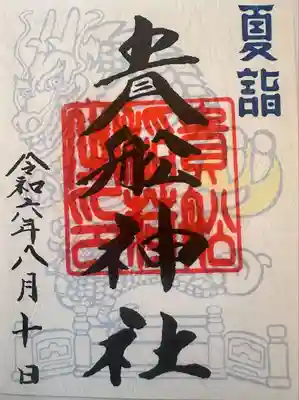 夏詣
貴船神社
令和六年八月十日